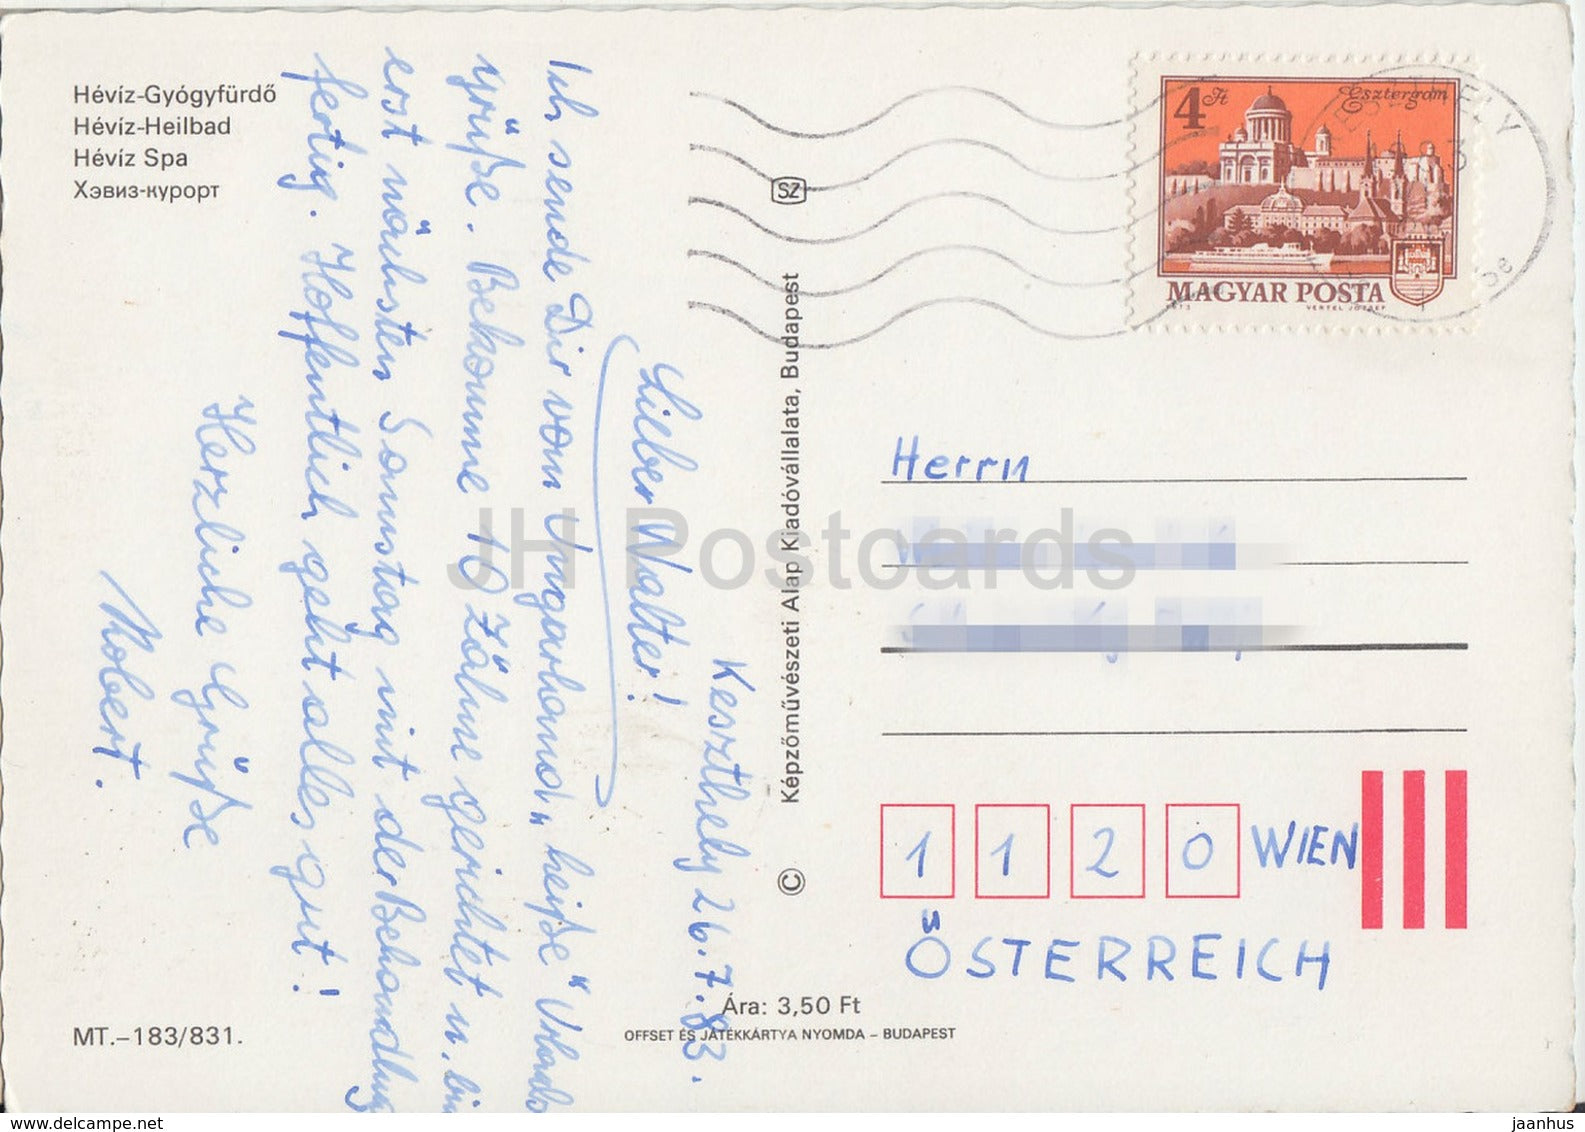 Hévíz-Gyógyfürdő
Hévíz-Heilbad
Hévíz Spa
Хэвиз-курорт
Keszthely 26.7.83.
Lieber Walter!
Ich sende Dir vom Ungarland „heiße" Urlaubs
grüße. Bekomme 10 Zähne gerichtet u. bin
erst nächsten Samstag mit der Behandlung
fertig. Hoffentlich geht alles gut!
Herzliche Grüße
Robert.
MT.-183/831.
SZ
Képzőművészeti Alap Kiadóvállalata, Budapest
©
Ára: 3,50 Ft
OFFSET ÉS JÁTÉKKÁRTYA NYOMDA – BUDAPEST
4 Ft
Esztergom
MAGYAR POSTA
VERTEL JÓZSEF
KESZTHELY
Herrn
1 1 2 0 WIEN
ÖSTERREICH
JH Postcards
delcampe.net
jaanhus